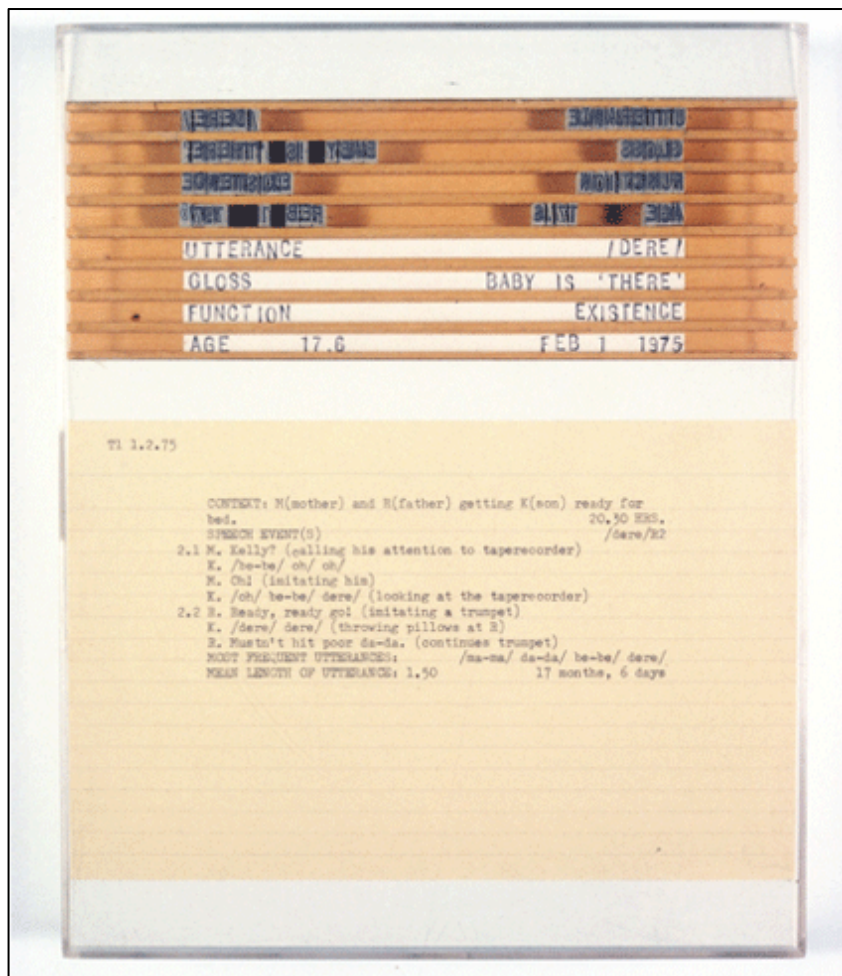 UTTERANCE /DERE/
GLOSS BABY IS 'THERE'
FUNCTION EXISTENCE
AGE 17/6 FEB 1 1975
UTTERANCE /DERE/
GLOSS BABY IS 'THERE'
FUNCTION EXISTENCE
AGE 17.6 FEB 1 1975
T1 1.2.75
CONTEXT: M(mother) and R(father) getting K(son) ready for
bed. 20.30 HRS.
SPEECH EVENT(S) /dere/R2
2.1 M. Kelly? (calling his attention to taperecorder)
K. /be-be/ oh/ oh/
M. Oh! (imitating him)
K. /oh/ be-be/ dere/ (looking at the taperecorder)
2.2 R. Ready, ready go! (imitating a trumpet)
K. /dere/ dere/ (throwing pillows at R)
R. Mustn't hit poor da-da. (continues trumpet)
MOST FREQUENT UTTERANCES: /ma-ma/ da-da/ be-be/ dere/
MEAN LENGTH OF UTTERANCE: 1.50 17 months, 6 days